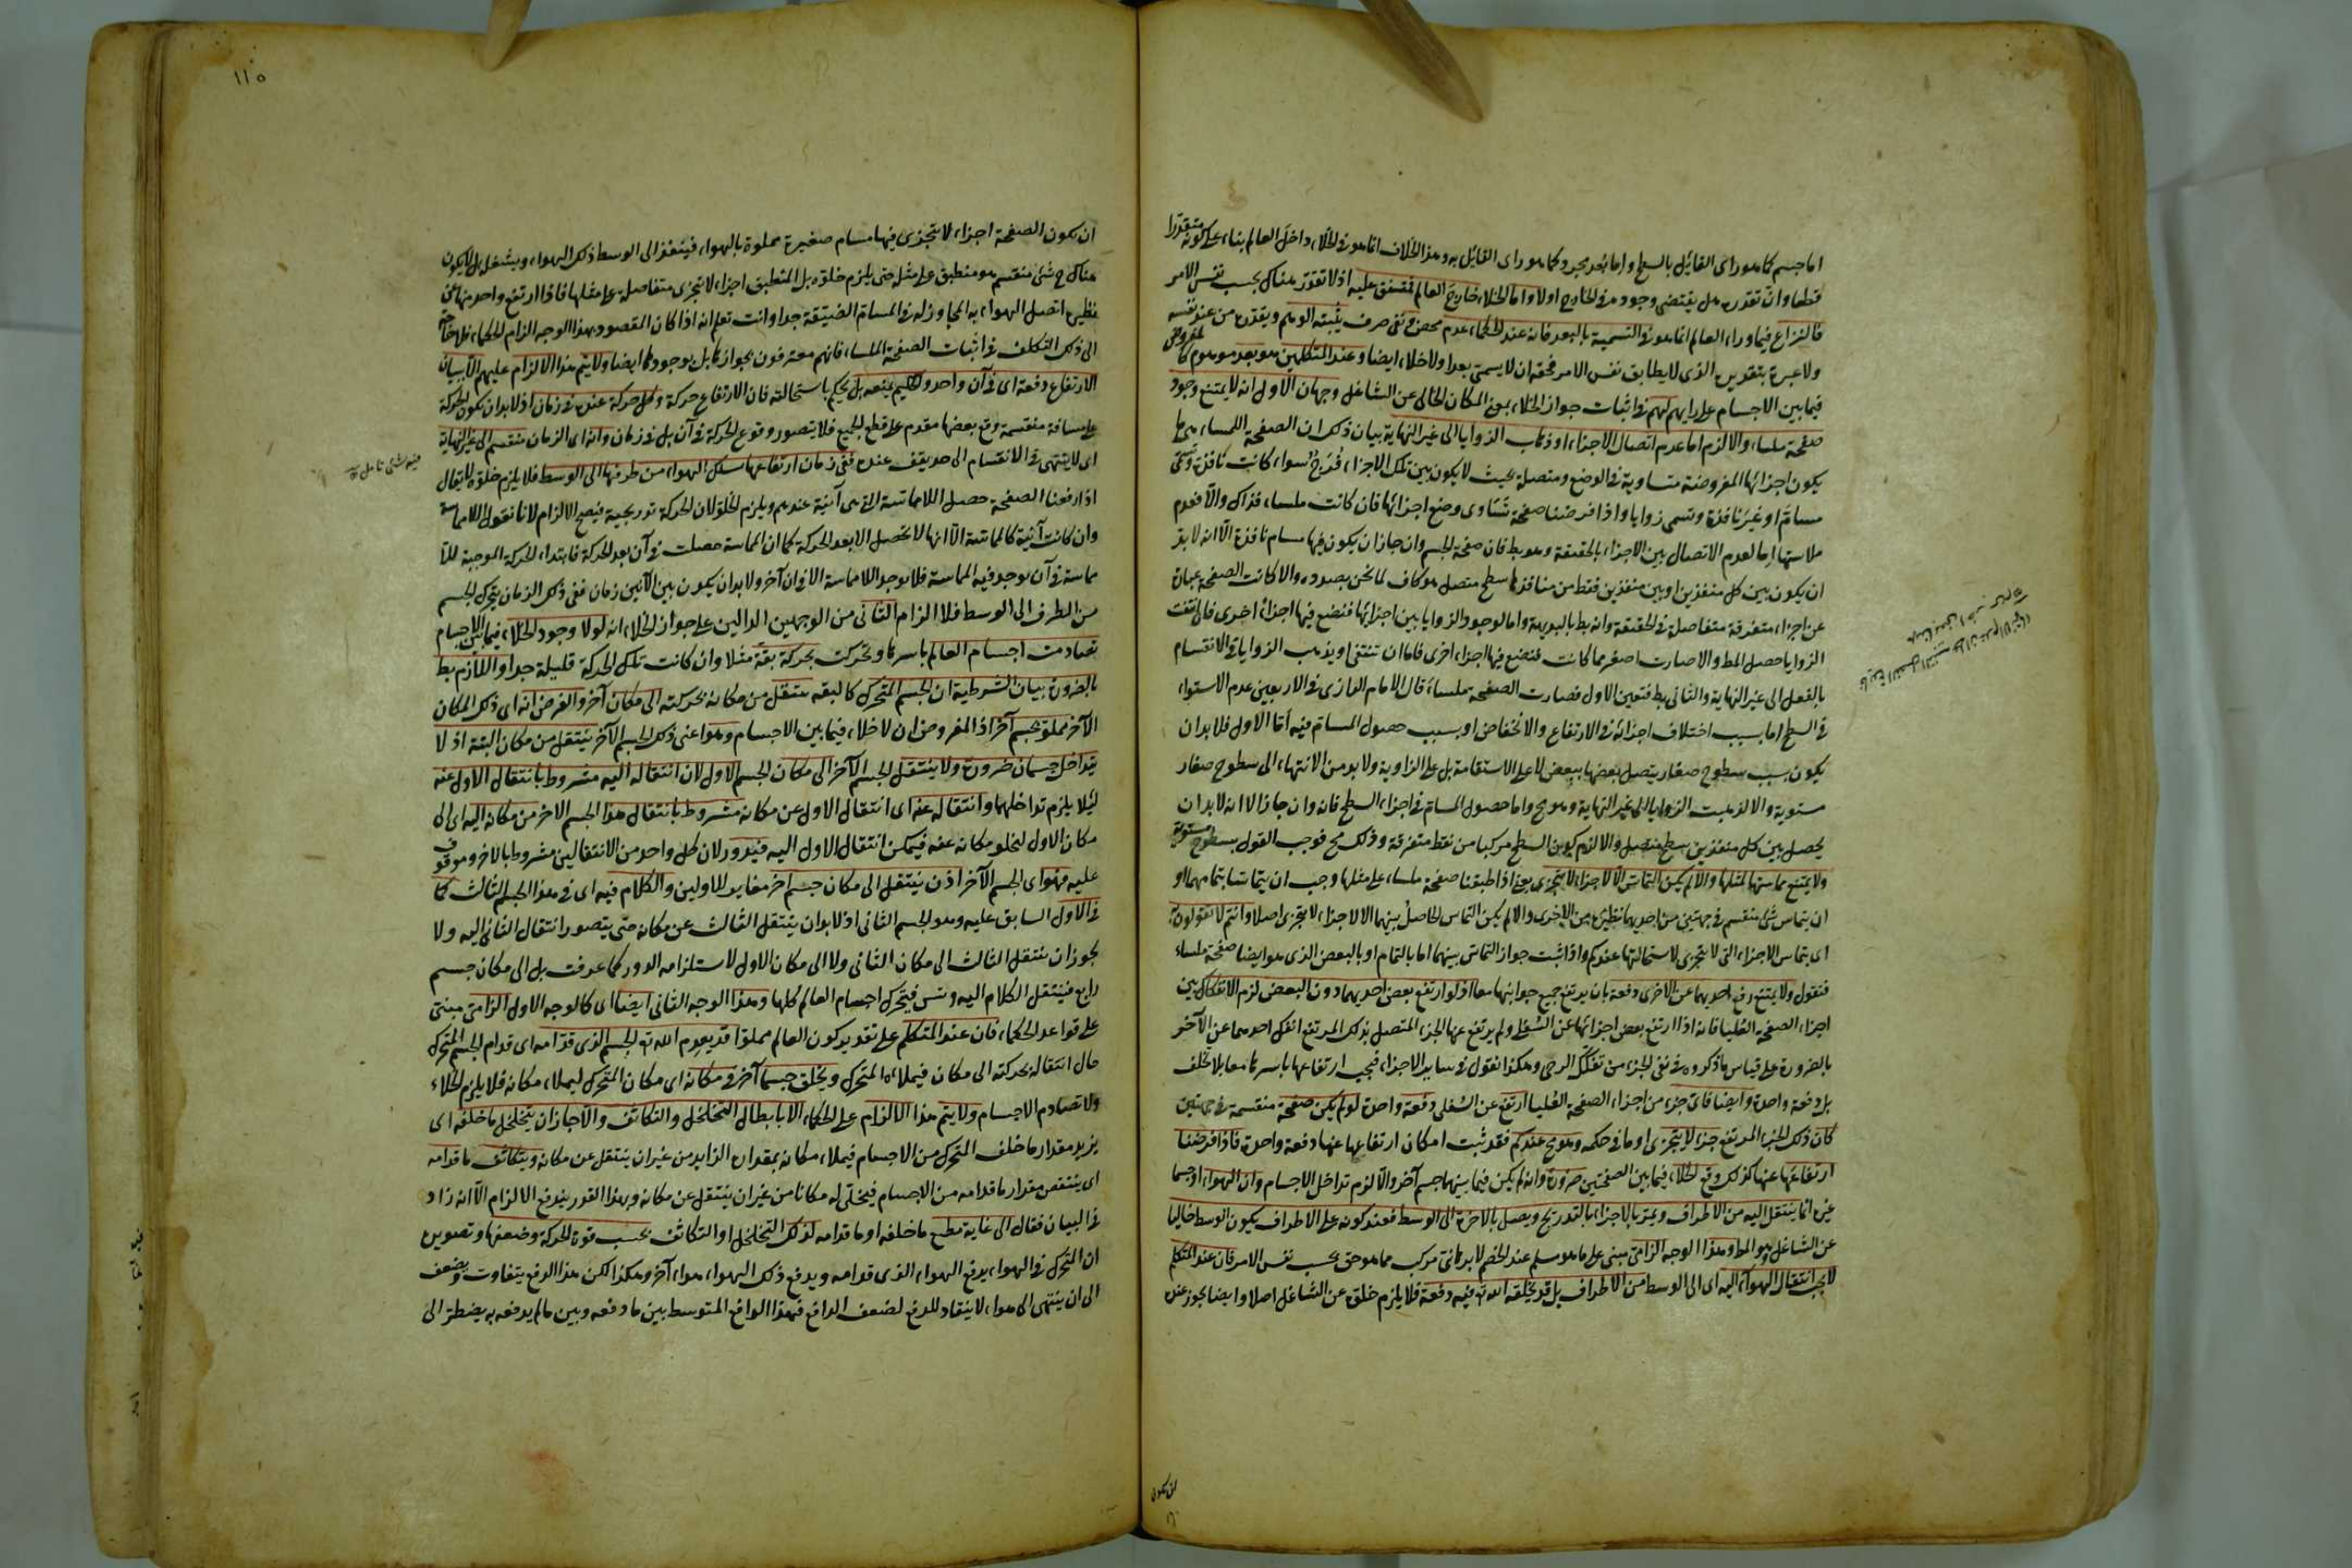 اما جسم كما هو راى القائل بالسطح واما بُعد مجرد كما هو راى القايل به وهذا الخلاف انما هو فى الخلاء داخل العالم بناء على كونه متقدرا
قطعا وانّ تقدّره هل يقتضى وجوده فى الخارج اولا واما الخلاء خارج العالم فمتفق عليه اذ لا تقدّر هناك بحسب نفس الامر
فالنزاع فيما وراء العالم انما هو فى التسمية بالبعد فانه عند الحكماء عدم محض ونفى صرف يثبته الوهم ويقدّره من عند نفسه
ولا عبرة بتقديره الذى لا يطابق نفس الامر فحقه ان لا يسمى بعدا ولا خلاء ايضا وعند المتكلمين هو بعد موهوم كالمفروض
فيما بين الاجسام على رأيهم لهم فى اثبات جواز الخلاء بمعنى المكان الخالى عن الشاغل وجهان الاول انه لا يمتنع وجود
صفحة ملساء والا لزم اما عدم اتصال الاجزاء او ذهاب الزوايا الى غير النهاية بيان ذلك ان الصفحة الملساء هى ما
يكون اجزائها المفروضة متساوية فى الوضع ومتصلة بحيث لا يكون بين تلك الاجزاء فُرَجٌ سواء كانت نافذة وتسمى
مسامّ او غير نافذة وتسمى زوايا واذا فرضنا صفحة تتساوى وضع اجزائها فان كانت ملساء فذاك والا فعدم
ملاستها اما لعدم الاتصال بين الاجزاء بالحقيقة وهو بط فان صفحة الجسم وان جاز ان يكون فيها مسام نافذة الّا انه لا بد
ان يكون بين كل منفذين او بين منفذين فقط من منافذها سطح متصل هو كاف لما نحن بصدده والا كانت الصفحة عبارة
عن اجزاء متفرقة متفاصلة فى الحقيقة وانه بط بالبديهة واما لوجود الزوايا بين اجزائها فنضع فيها اجزاء اخرى فان انتفت
الزوايا حصل المط والا صارت اصغر مما كانت فنضع فيها اجزاء اخرى فاما ان تنتفى او يذهب الزوايا فى الانقسام
بالفعل الى غير النهاية والثانى بط فتعين الاول فصارت الصفحة ملساء قال الامام الرازى فى الاربعين عدم الاستواء
فى السطح اما بسبب اختلاف اجزائه فى الارتفاع والانخفاض او بسبب حصول المسامّ فيه أمّا الاول فلا بد ان
يكون بسبب سطوح صغار يتصل بعضها ببعض لا على الاستقامة بل على الزاوية ولا بد من الانتهاء الى سطوح صغار
مستوية والا لذهبت الزوايا الى غير النهاية وهو مح واما حصول المسامّ فى اجزاء السطح فانه وان جاز الا انه لا بد ان
يحصل بين كل منفذين سطح متصل والا لزم كون السطح مركبا من نقط متفرقة وذلك مح فوجب القول بسطوح مستوية
ولا يمتنع مماستها لمثلها والا لم يكن التماسّ الا لاجزاء لا يتجزى يعنى اذا اطبقنا صفحة ملساء على مثلها وجب ان يتماسّا بتمامهما او
ان يتماس شئ منقسم فى جهتين من احديهما نظيره من الاخرى والا لم يكن التماس الحاصل بينهما الا لاجزاء لا يتجزى اصلا وانتم لا تقولون به
اى بتماس الاجزاء التى لا يتجزى لاستحالتها عندكم واذا ثبت جواز التماسّ بينهما اما بالتمام او بالبعض الذى هو ايضا صفحة ملساء
فنقول ولا يمتنع رفع احديهما عن الاخرى دفعة بان يرتفع جميع جوانبها معا اذ لو ارتفع بعض احديهما دون البعض لزم الانفكاك بين
اجزاء الصفحة العُليا فانه اذا ارتفع بعض اجزائها عن السُفلى ولم يرتفع عنها الجزء المتصل بذلك المرتفع انفك احدهما عن الآخر
بالضرورة على قياس ما ذكروه فى نفى الجزء من تفكّك الرحى وهكذا نقول فى ساير الاجزاء فيجب ارتفاعها باسرها معا بلا تخلف
بل دفعة واحدة وايضا فاىّ جزء من اجزاء الصفحة العُليا ارتفع عن السُفلى دفعة واحدة لو لم يكن صفحة منقسمة فى جهتين
كان ذلك الجزء المرتفع جزءا لا يتجزى او ما فى حكمه وهو مح عندكم فقد ثبت امكان ارتفاعها عنها دفعة واحدة فاذا فرضنا
ارتفاعها عنها كذلك وقع الخلاء فيما بين الصفحتين ضرورة وانه لم يكن فيما بينهما جسم آخر والا لزم تداخل الاجسام وان الهواء او جسما
غيره انما ينتقل اليه من الاطراف ويمر بالاجزاء بالتدريج ويصل بالاخرة الى الوسط فعند كونه على الاطراف يكون الوسط خاليا
عن الشاغل وهو المط وهذا الوجه الزامىّ مبنى على ما هو مسلم عند الخصم لا برهانىّ مركب مما هو حق بحسب نفس الامر فان عند المتكلم
لا يجب انتقال الهواء اليه اى الى الوسط من الاطراف بل قد يخلقه الله تع فيه دفعة فلا يلزم خلوّه عن الشاغل اصلا وايضا يجوز عنده
ان يكون
١١٥
ان يكون الصفحة اجزاء لا تتجزى فيها مسام صغيرة مملوة بالهواء فينفذ الى الوسط ذلك الهواء ويشغله بل لا يكون
هناك ح شئ منقسم هو منطبق على مثله حتى يلزم خلوّه بل المنطبق اجزاء لا يتجزى متفاصلة على مثلها فاذا ارتفع واحد منها عن
نظيره اتصل الهواء به المجاور له فى المسامّ الضيّقة جدا وانت تعلم انه اذا كان المقصود بهذا الوجه الزام الحكماء فلا حاجة
الى ذلك التكلف فى اثبات الصفحة الملساء فانهم معترفون بجوازها بل بوجودها ايضا ولا يتم هذا الالزام عليهم الّا ببيان
الارتفاع دفعة اى فى آن واحد والحكيم يمنعه بل يحكم باستحالته فان الارتفاع حركة وكل حركة عنده فى زمان اذ لا بد ان يكون الحركة
على مسافة منقسمة وقع بعضها مقدم على قطع الجميع فلا يتصور وقوع الحركة فى آن بل فى زمان وانه اى الزمان منقسم الى غير النهاية
اى لا ينتهى فى الانقسام الى حد يقف عنده ففى زمان ارتفاعها يسلك الهواء من طرفها الى الوسط فلا يلزم خلوّه لا يقال
اذا رفعنا الصفحة حصل اللامماسّة التى هى آنيّة عندهم ويلزم الخلوّ لان الحركة تدريجية فيصح الالزام لانا نقول اللامماسة
وان كانت آنيّة كالمماسّة الّا انها لا تحصل الا بعد الحركة كما ان المماسة حصلت فى آن بعد الحركة فابتداء الحركة الموجبة للّا
مماسة فى آن يوجد فيه المماسة فلا يوجد اللامماسة الا فى آن آخر ولا بد ان يكون بين الآنين زمان ففى ذلك الزمان يتحرك الجسم
من الطرف الى الوسط فلا الزام الثانى من الوجهين الدالين على جواز الخلاء انه لولا وجود الخلاء فيما بين الاجسام
تصادمت اجسام العالم باسرها وتحركت بحركة بقّة مثلا وان كانت تلك الحركة قليلة جدا واللازم بط
بالضرورة بيان الشرطية ان الجسم المتحرك كالبقة ينتقل من مكانه بحركته الى مكان آخر والفرض انه اى ذلك المكان
الآخر مملوّ بجسم آخر اذ المفروض ان لا خلاء فيما بين الاجسام وهو اعنى ذلك الجسم الآخر ينتقل من مكان البتة اذ لا
يتداخل جسمان ضرورة ولا ينتقل الجسم الآخر الى مكان الجسم الاول لان انتقاله اليه مشروط بانتقال الاول عنه
لئلا يلزم تداخلهما وانتقاله عنه اى انتقال الاول عن مكانه مشروط بانتقال هذا الجسم الاخر من مكانه اليه اى الى
مكان الاول ليخلو مكانه عنه فيمكن انتقال الاول اليه فيدور لان كل واحد من الانتقالين مشروط بالاخر وموقوف
عليه فهو اى الجسم الآخر اذن ينتقل الى مكان جسم آخر مغاير للاولين والكلام فيه اى فى هذا الجسم الثالث كما
فى الاول السابق عليه وهو الجسم الثانى اذ لا بد ان ينتقل الثالث عن مكانه حتى يتصور انتقال الثانى اليه ولا
يجوز ان ينتقل الثالث الى مكان الثانى ولا الى مكان الاول لاستلزامه الدور كما عرفت بل الى مكان جسم
رابع فينتقل الكلام اليه وتس فيتحرك اجسام العالم كلها وهذا الوجه الثانى ايضا اى كالوجه الاول الزامىّ مبنىّ
على قواعد الحكماء فان عند المتكلم على تقدير كون العالم مملوّا قد يعدم الله تع الجسم الذى قدّامه اى قدام الجسم المتحرك
حال انتقاله بحركته الى مكان فيملاءه المتحرك ويخلق جسما آخر فى مكانه اى مكان المتحرك ليملاء مكانه فلا يلزم الخلاء
ولا تصادم الاجسام ولا يتم هذا الالزام على الحكماء الا بابطال التخلخل والتكاثف والا جاز ان يتخلخل ما خلفه اى
يزيد مقدار ما خلف المتحرك من الاجسام فيملاء مكانه بمقداره الزايد من غير ان ينتقل عن مكانه ويتكاثف ما قدامه
اى ينتقص مقدار ما قدامه من الاجسام فيخلى له مكانا من غير ان ينتقل عن مكانه وبهذا القدر يندفع الالزام الّا انه زاد
فى البيان فقال الى غاية مطيع ما خلفه او ما قدامه لذلك التخلخل او التكاثف بحسب قوة الحركة وضعفها وتصويره
ان المتحرك فى الهواء يدفع الهواء الذى قدامه ويدفع ذلك الهواء هواء آخر وهكذا لكن هذا الدفع يتفاوت ويضعف
الى ان ينتهى الى هواء لا ينقاد للدفع لضعف الدافع فهذا الواقع المتوسط بين ما دفعه وبين ما لم يدفعه به يضطر الى